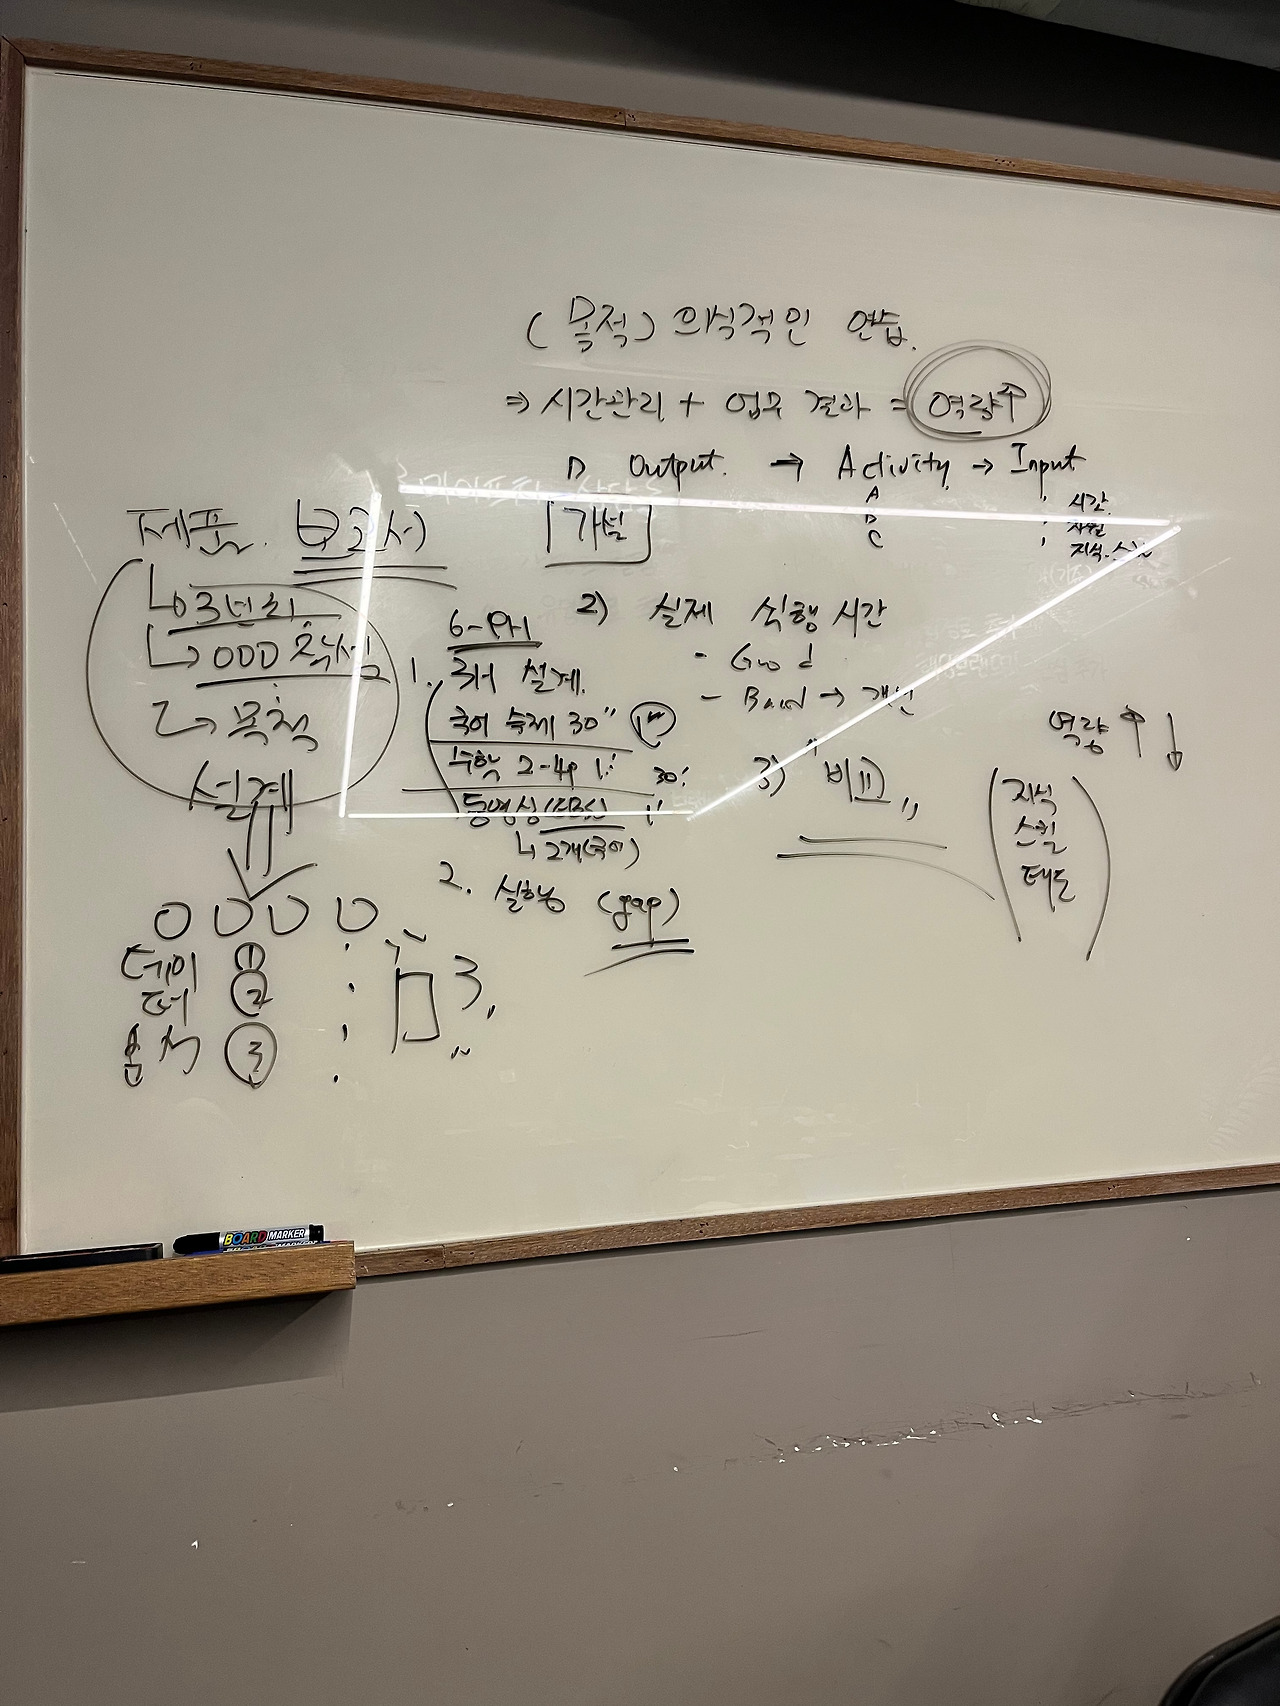 (목적) 의식적인 연습.
⇒ 시간관리 + 업무 결과 = 역량↑
1) Output. → Activity → Input
A
B
C
시간.
지식.
제품. 보고서
개념
↳ 3년치
↳ OOD
↳ 목적
설계
6-PM
1. 설계.
국어 숙제 30"
수학 2-4p
30'
동영상
↳ 2개(국어)
2. 실행 (gap)
2) 실제 실행 시간
- Good
- Bad → 개선
3) 비교
역량 ↑ ↓
지식
스킬
태도
O O O O
데이
터
①
②
③
3
BOARD MARKER